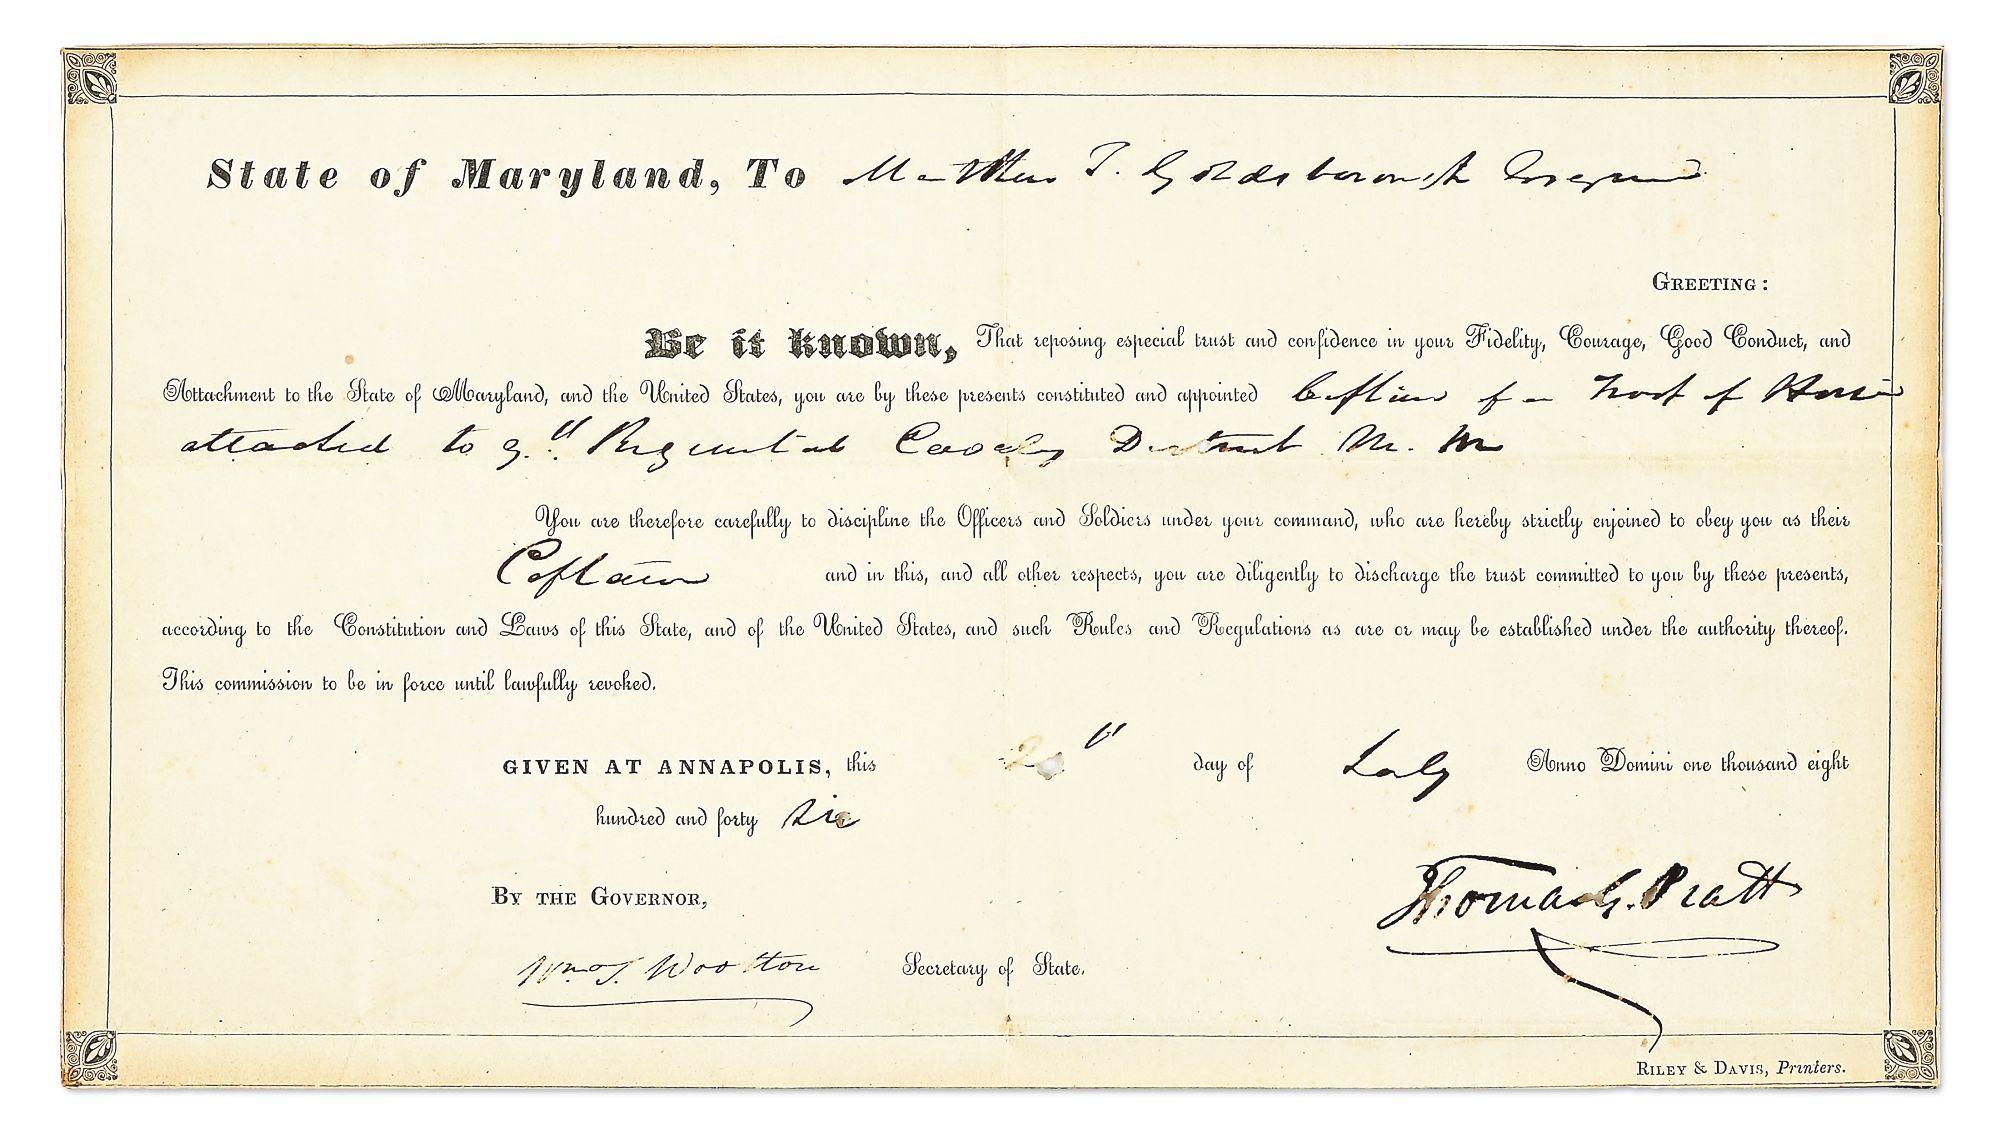 State of Maryland, To Matthew T. Goldsborough Esquire
GREETING:
Be it known, That reposing especial trust and confidence in your Fidelity, Courage, Good Conduct, and
Attachment to the State of Maryland, and the United States, you are by these presents constituted and appointed Captain of a Troop of Horse
attached to 9th Regimental Cavalry District M. M
You are therefore carefully to discipline the Officers and Soldiers under your command, who are hereby strictly enjoined to obey you as their
Captain and in this, and all other respects, you are diligently to discharge the trust committed to you by these presents,
according to the Constitution and Laws of this State, and of the United States, and such Rules and Regulations as are or may be established under the authority thereof.
This commission to be in force until lawfully revoked.
GIVEN AT ANNAPOLIS, this day of July Anno Domini one thousand eight
hundred and forty six
BY THE GOVERNOR,
Thomas G. Pratt
Wm. T. Wootton Secretary of State.
RILEY & DAVIS, Printers.